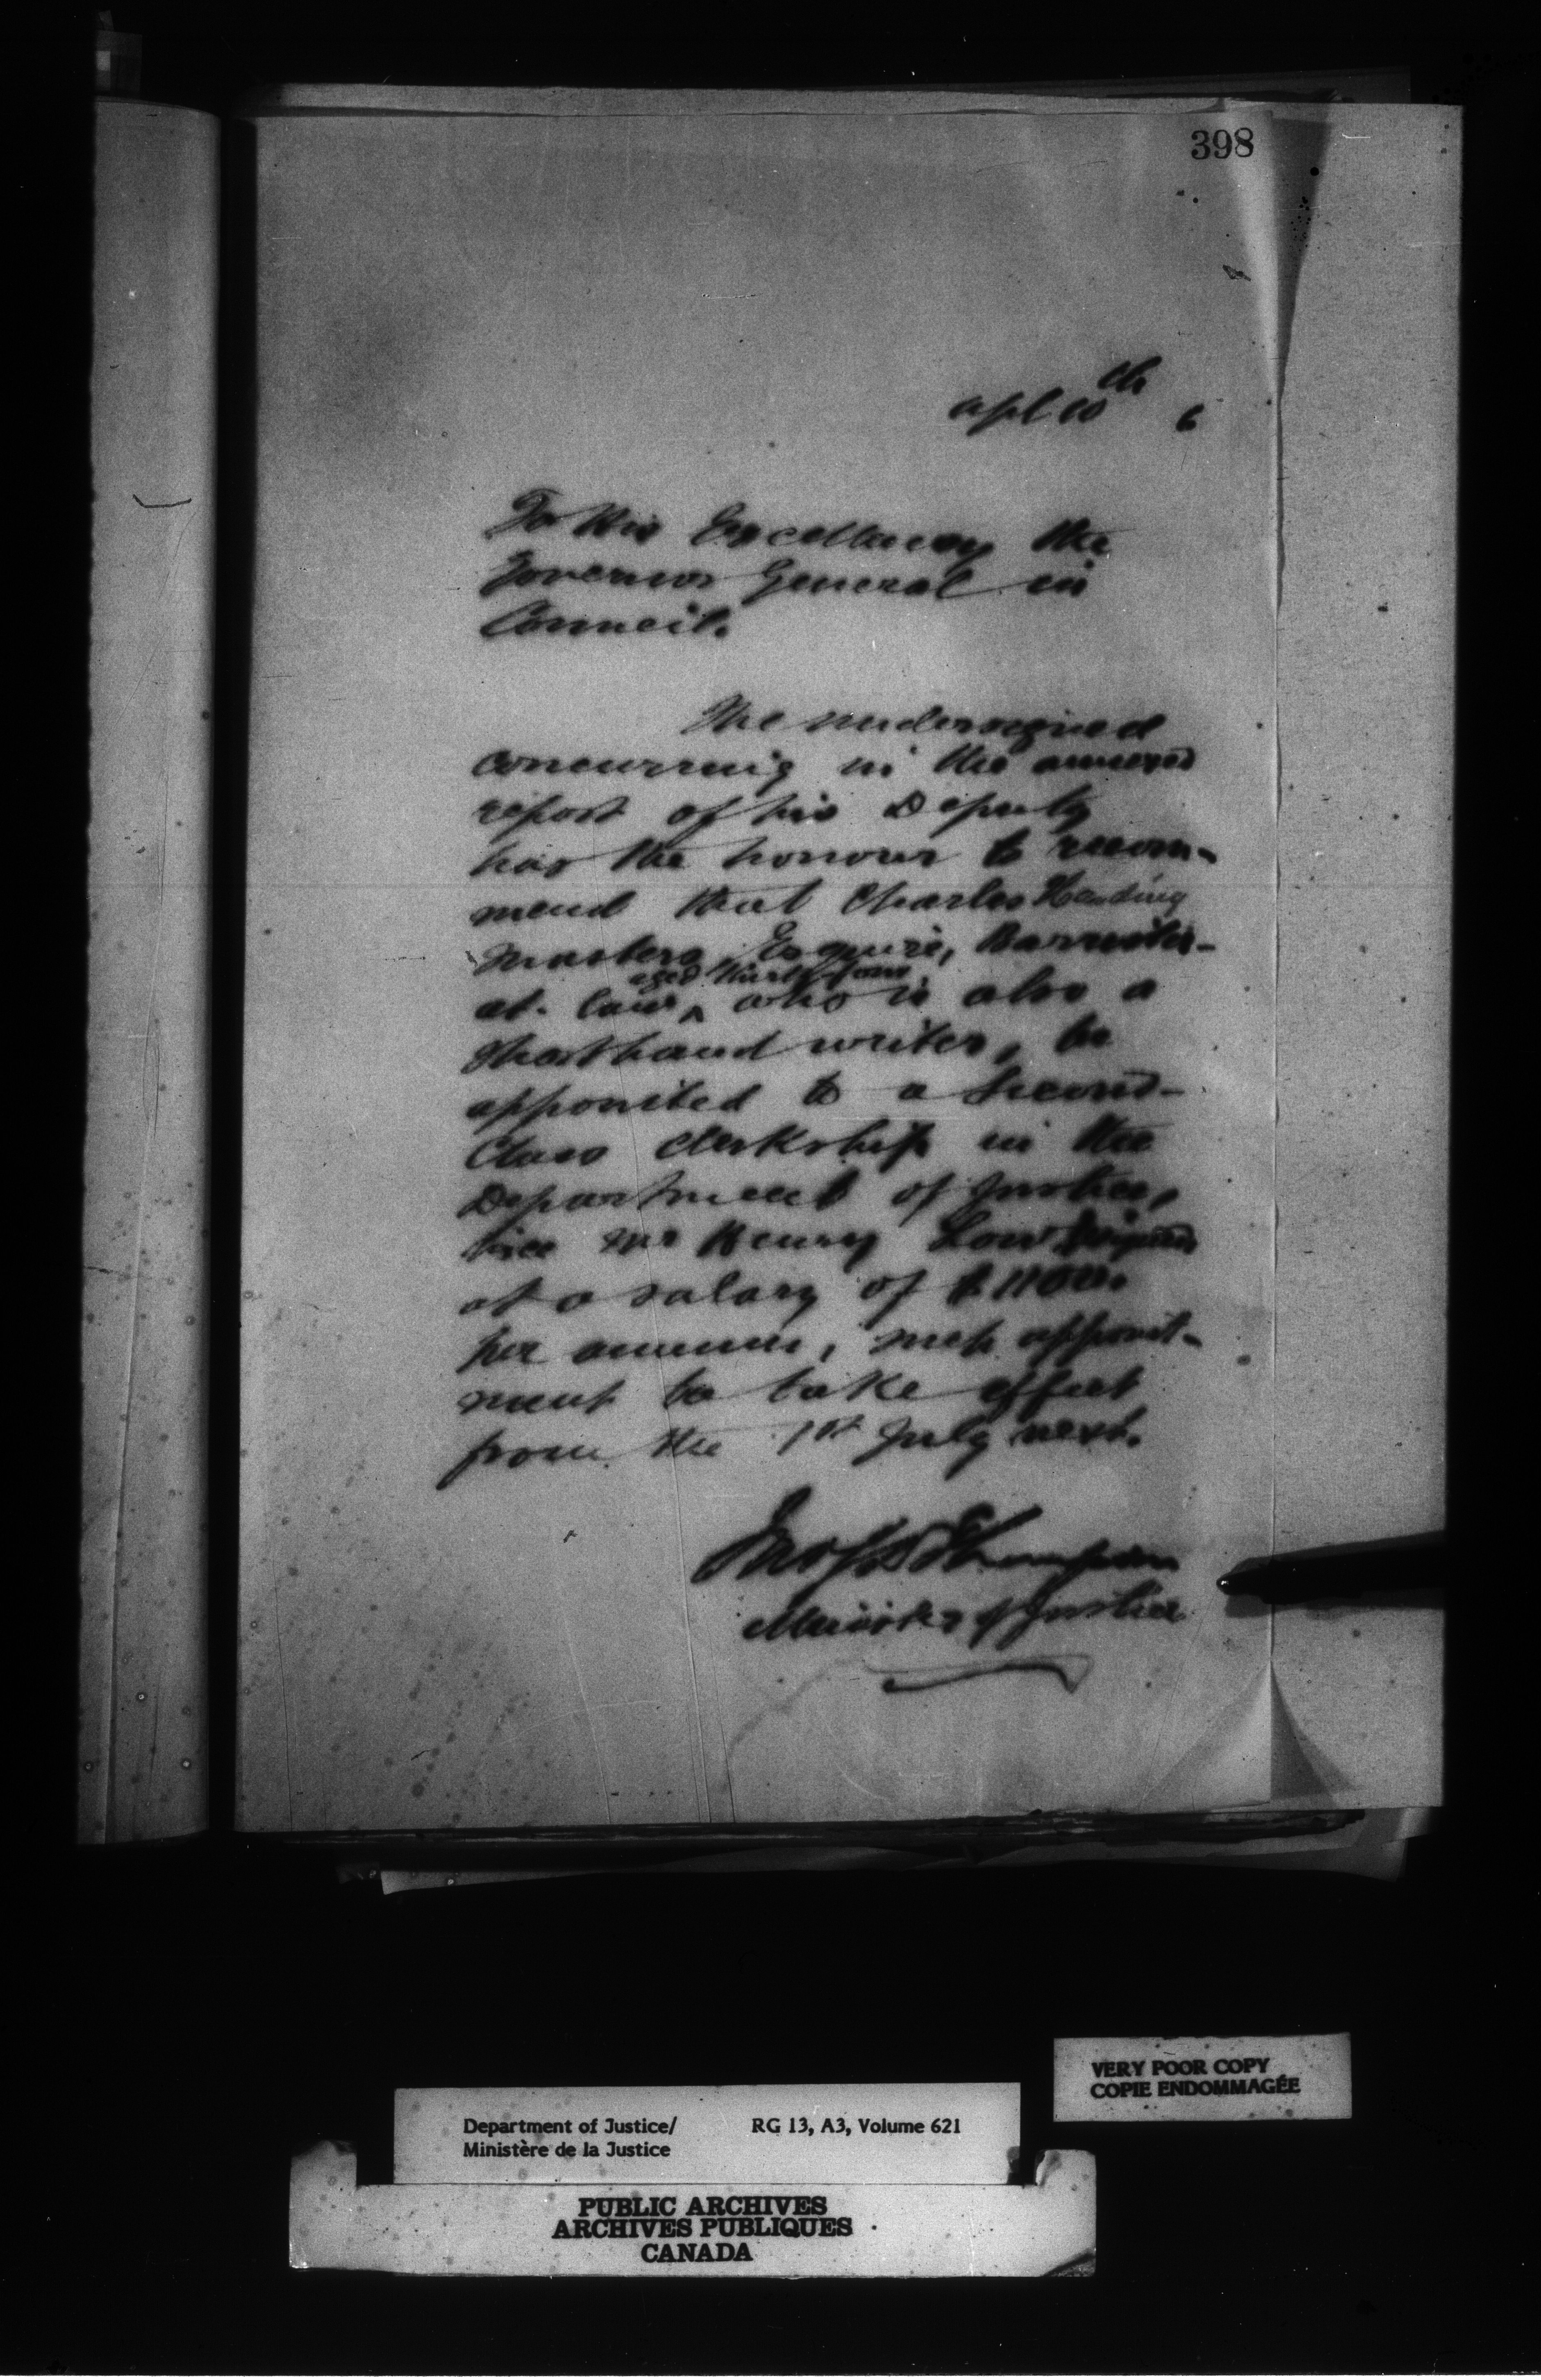 398
Apl 10th 6
To His Excellency the
Governor General in
Council.
The undersigned
concurring in the annexed
report of his Deputy
has the honour to recom-
mend that Charles Harding
Masters, Esquire, Barrister-
at-law, aged thirty four, who is also a
shorthand writer, be
appointed to a Second-
Class Clerkship in the
Department of Justice,
vice Mr Henry Low
at a salary of $1100.
per annum, such appoint-
ment to take effect
from the 1st July next.
Jno S D Thompson
Minister of Justice
VERY POOR COPY
COPIE ENDOMMAGÉE
Department of Justice/ RG 13, A3, Volume 621
Ministère de la Justice
PUBLIC ARCHIVES
ARCHIVES PUBLIQUES
CANADA